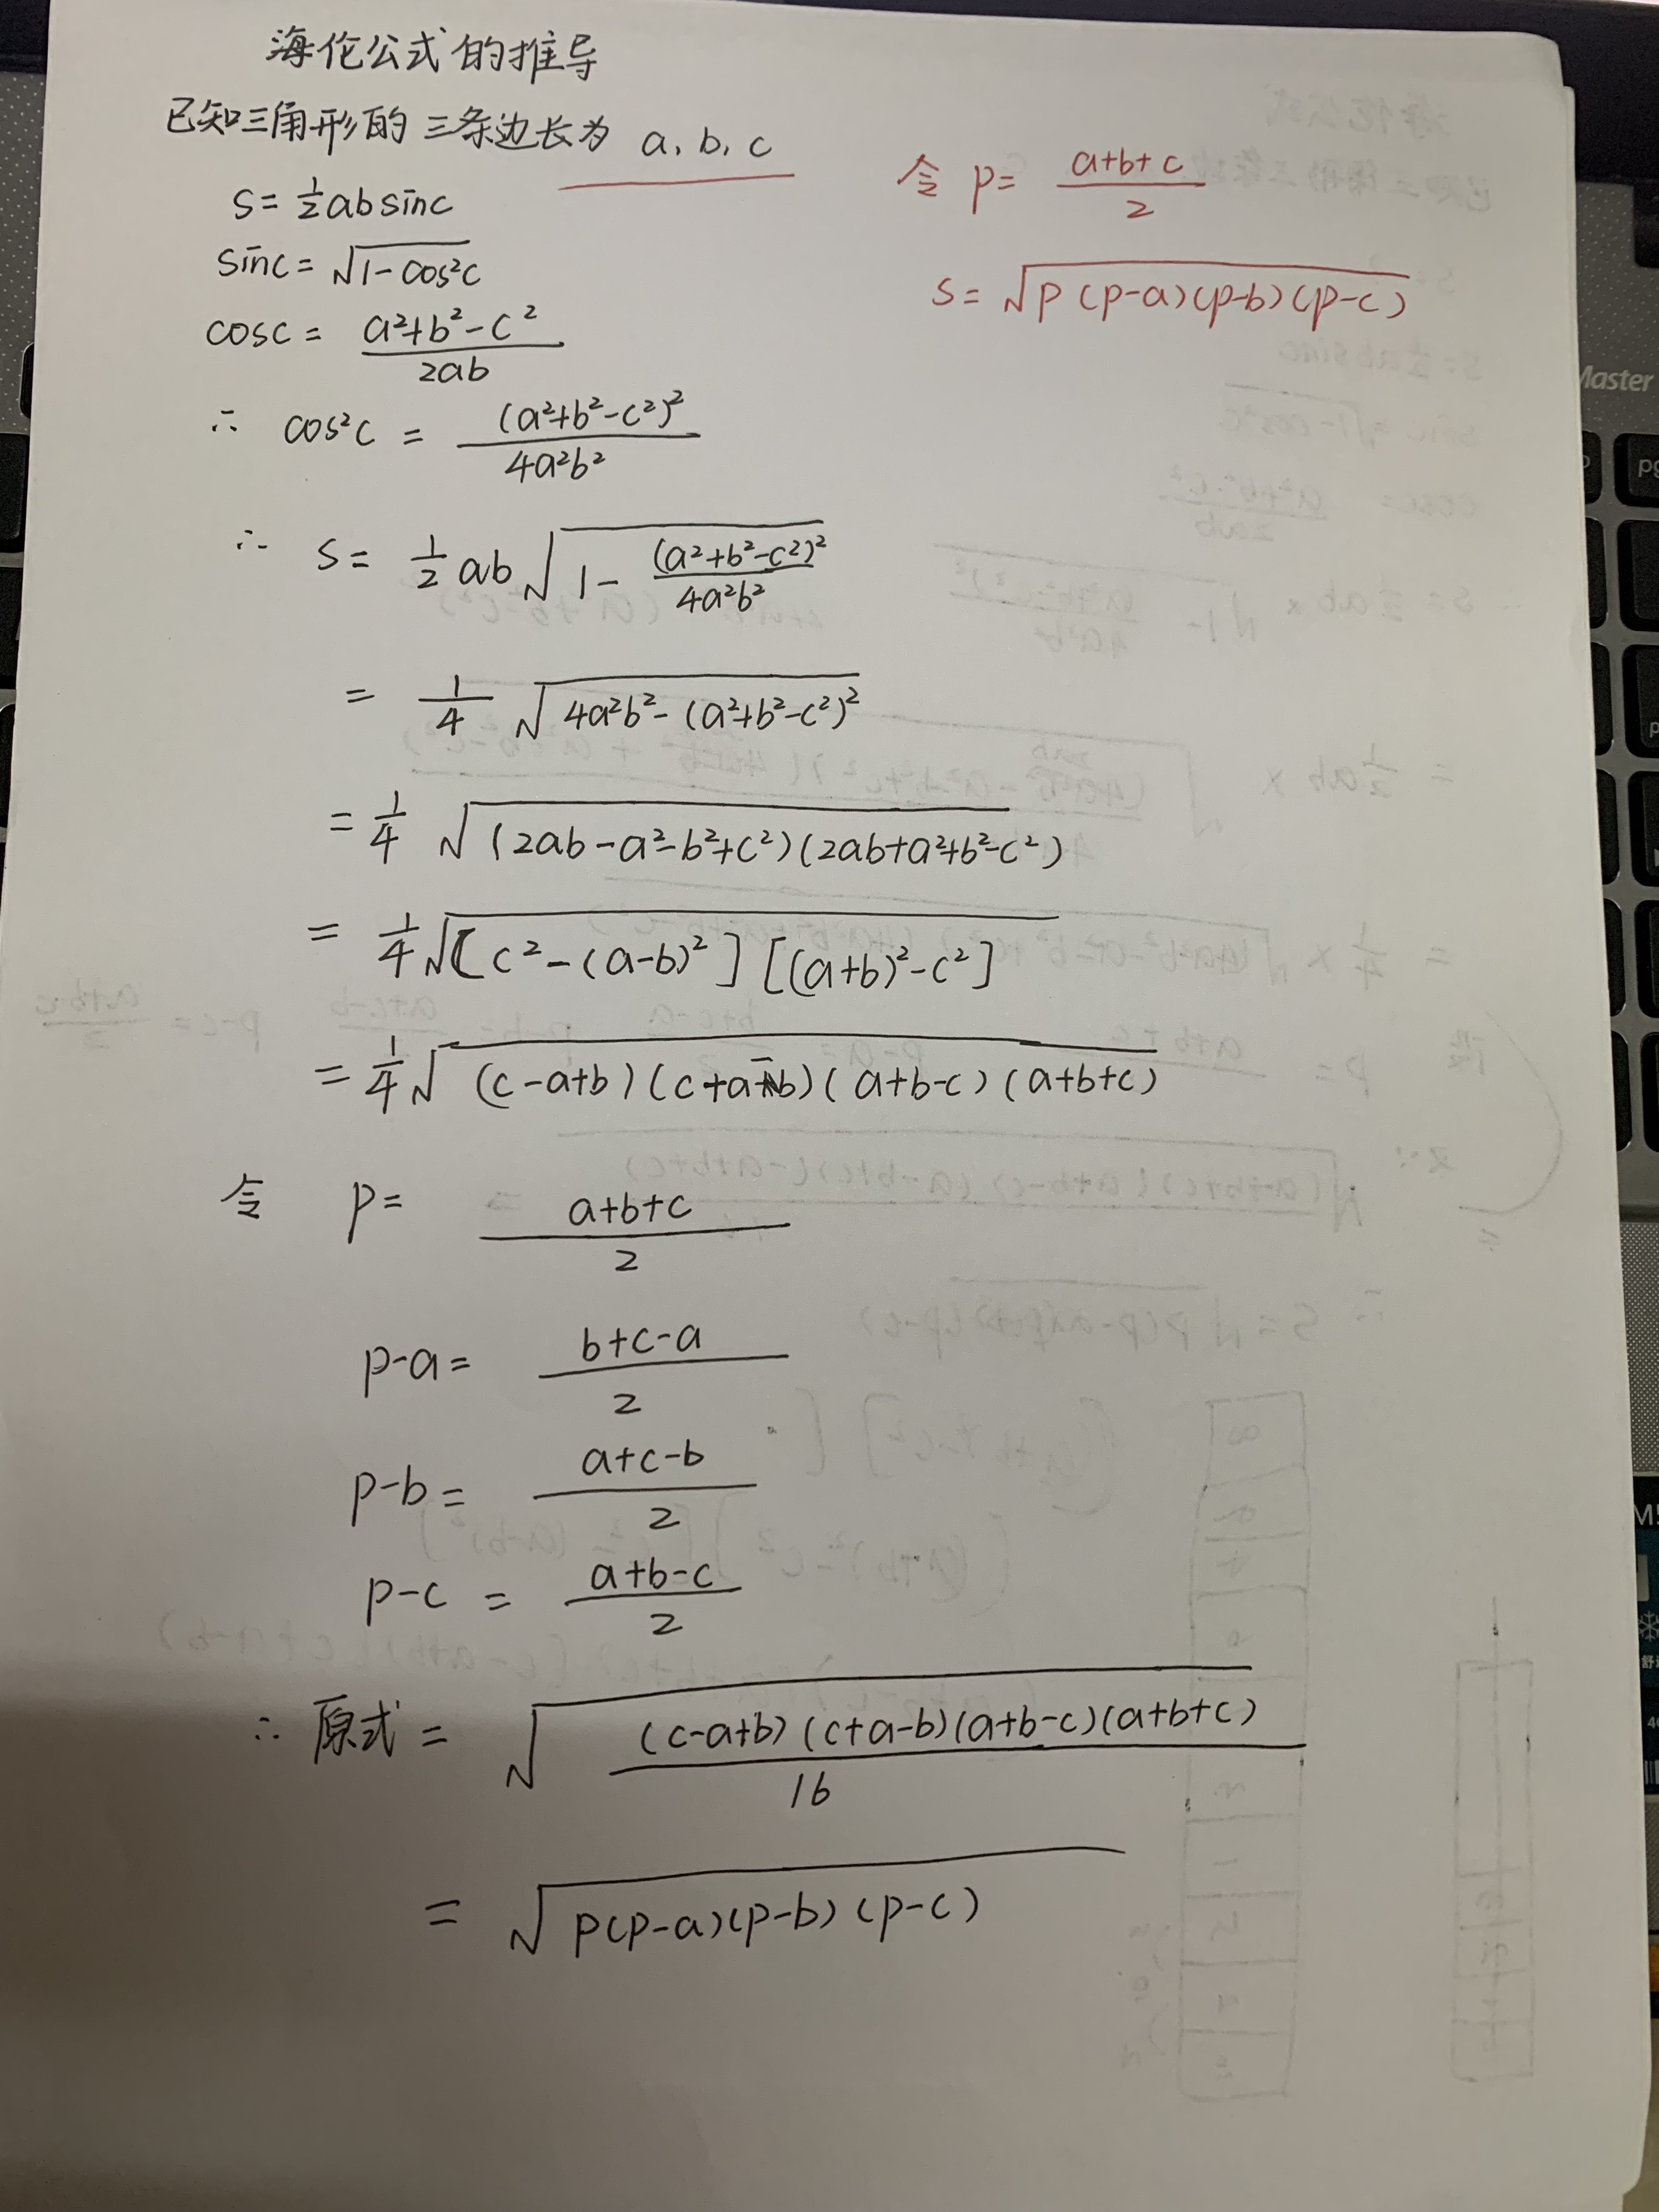 海伦公式的推导
已知三角形的三条边长为 a、b、c
令 p= (a+b+c)/2
s=√(p(p-a)(p-b)(p-c))
s=½absinc
sinc=√(1-cos²c)
cosc= (a²+b²-c²)/2ab
∴ cos²c = (a²+b²-c²)²/4a²b²
∴ s= ½ab√(1-(a²+b²-c²)²/4a²b²)
= ¼√(4a²b²-(a²+b²-c²)²)
=¼√((2ab-a²-b²+c²)(2ab+a²+b²-c²))
= ¼√([c²-(a-b)²][(a+b)²-c²])
=¼√((c-a+b)(c+a-b)(a+b-c)(a+b+c))
令 p= (a+b+c)/2
p-a= (b+c-a)/2
p-b= (a+c-b)/2
p-c = (a+b-c)/2
∴ 原式= √((c-a+b)(c+a-b)(a+b-c)(a+b+c)/16)
= √(p(p-a)(p-b)(p-c))
Master